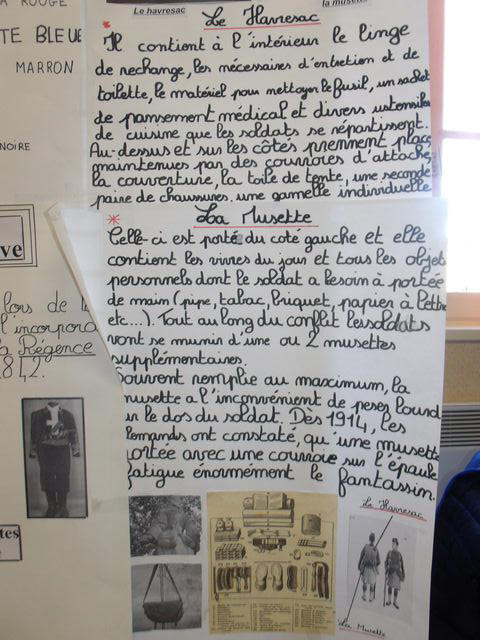 ROUGE
TE BLEUE
MARRON
NOIRE
ve
lors de l
l'incorpora
la Régence
842.
tes
e
Le havresac
la musette
* Le Havresac
Il contient à l'intérieur le linge
de rechange, les nécessaires d'entretien et de
toilette, le matériel pour nettoyer le fusil, un sachet
de pansement médical et divers ustensiles
de cuisine que les soldats se répartissent.
Au-dessus et sur les côtés prennent place,
maintenues par des courroies d'attache,
la couverture, la toile de tente, une seconde
paire de chaussures, une gamelle individuelle
* La Musette
Celle-ci est portée du coté gauche et elle
contient les vivres du jour et tous les objets
personnels dont le soldat a besoin à portée
de main (pipe, tabac, briquet, papier à lettre
etc...). Tout au long du conflit les soldats
vont se munir d'une ou 2 musettes
supplémentaires.
Souvent remplie au maximum, la
musette a l'inconvénient de peser lourd
ur le dos du soldat. Dès 1914, les
llemands ont constaté, qu'une musette
ortée avec une courroie sur l'épaule
fatigue énormément le fantassin.
Le Havresac
La Musette